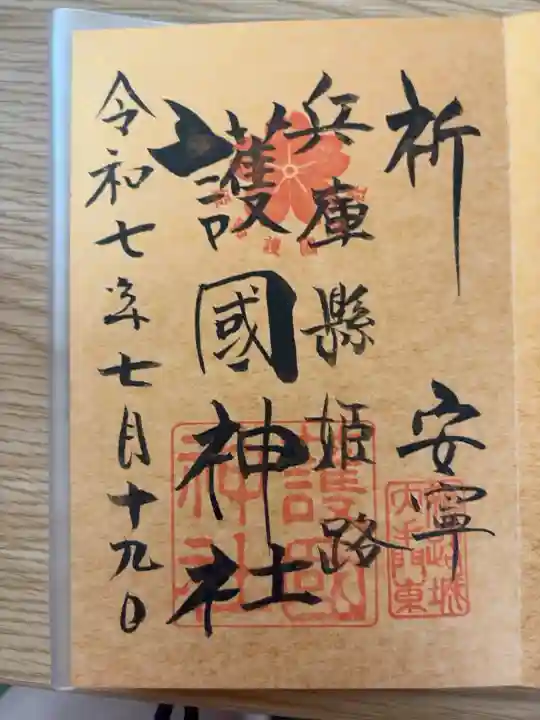 祈 安寧
兵庫縣姫路
護國神社
令和七年七月十九日
護國神社